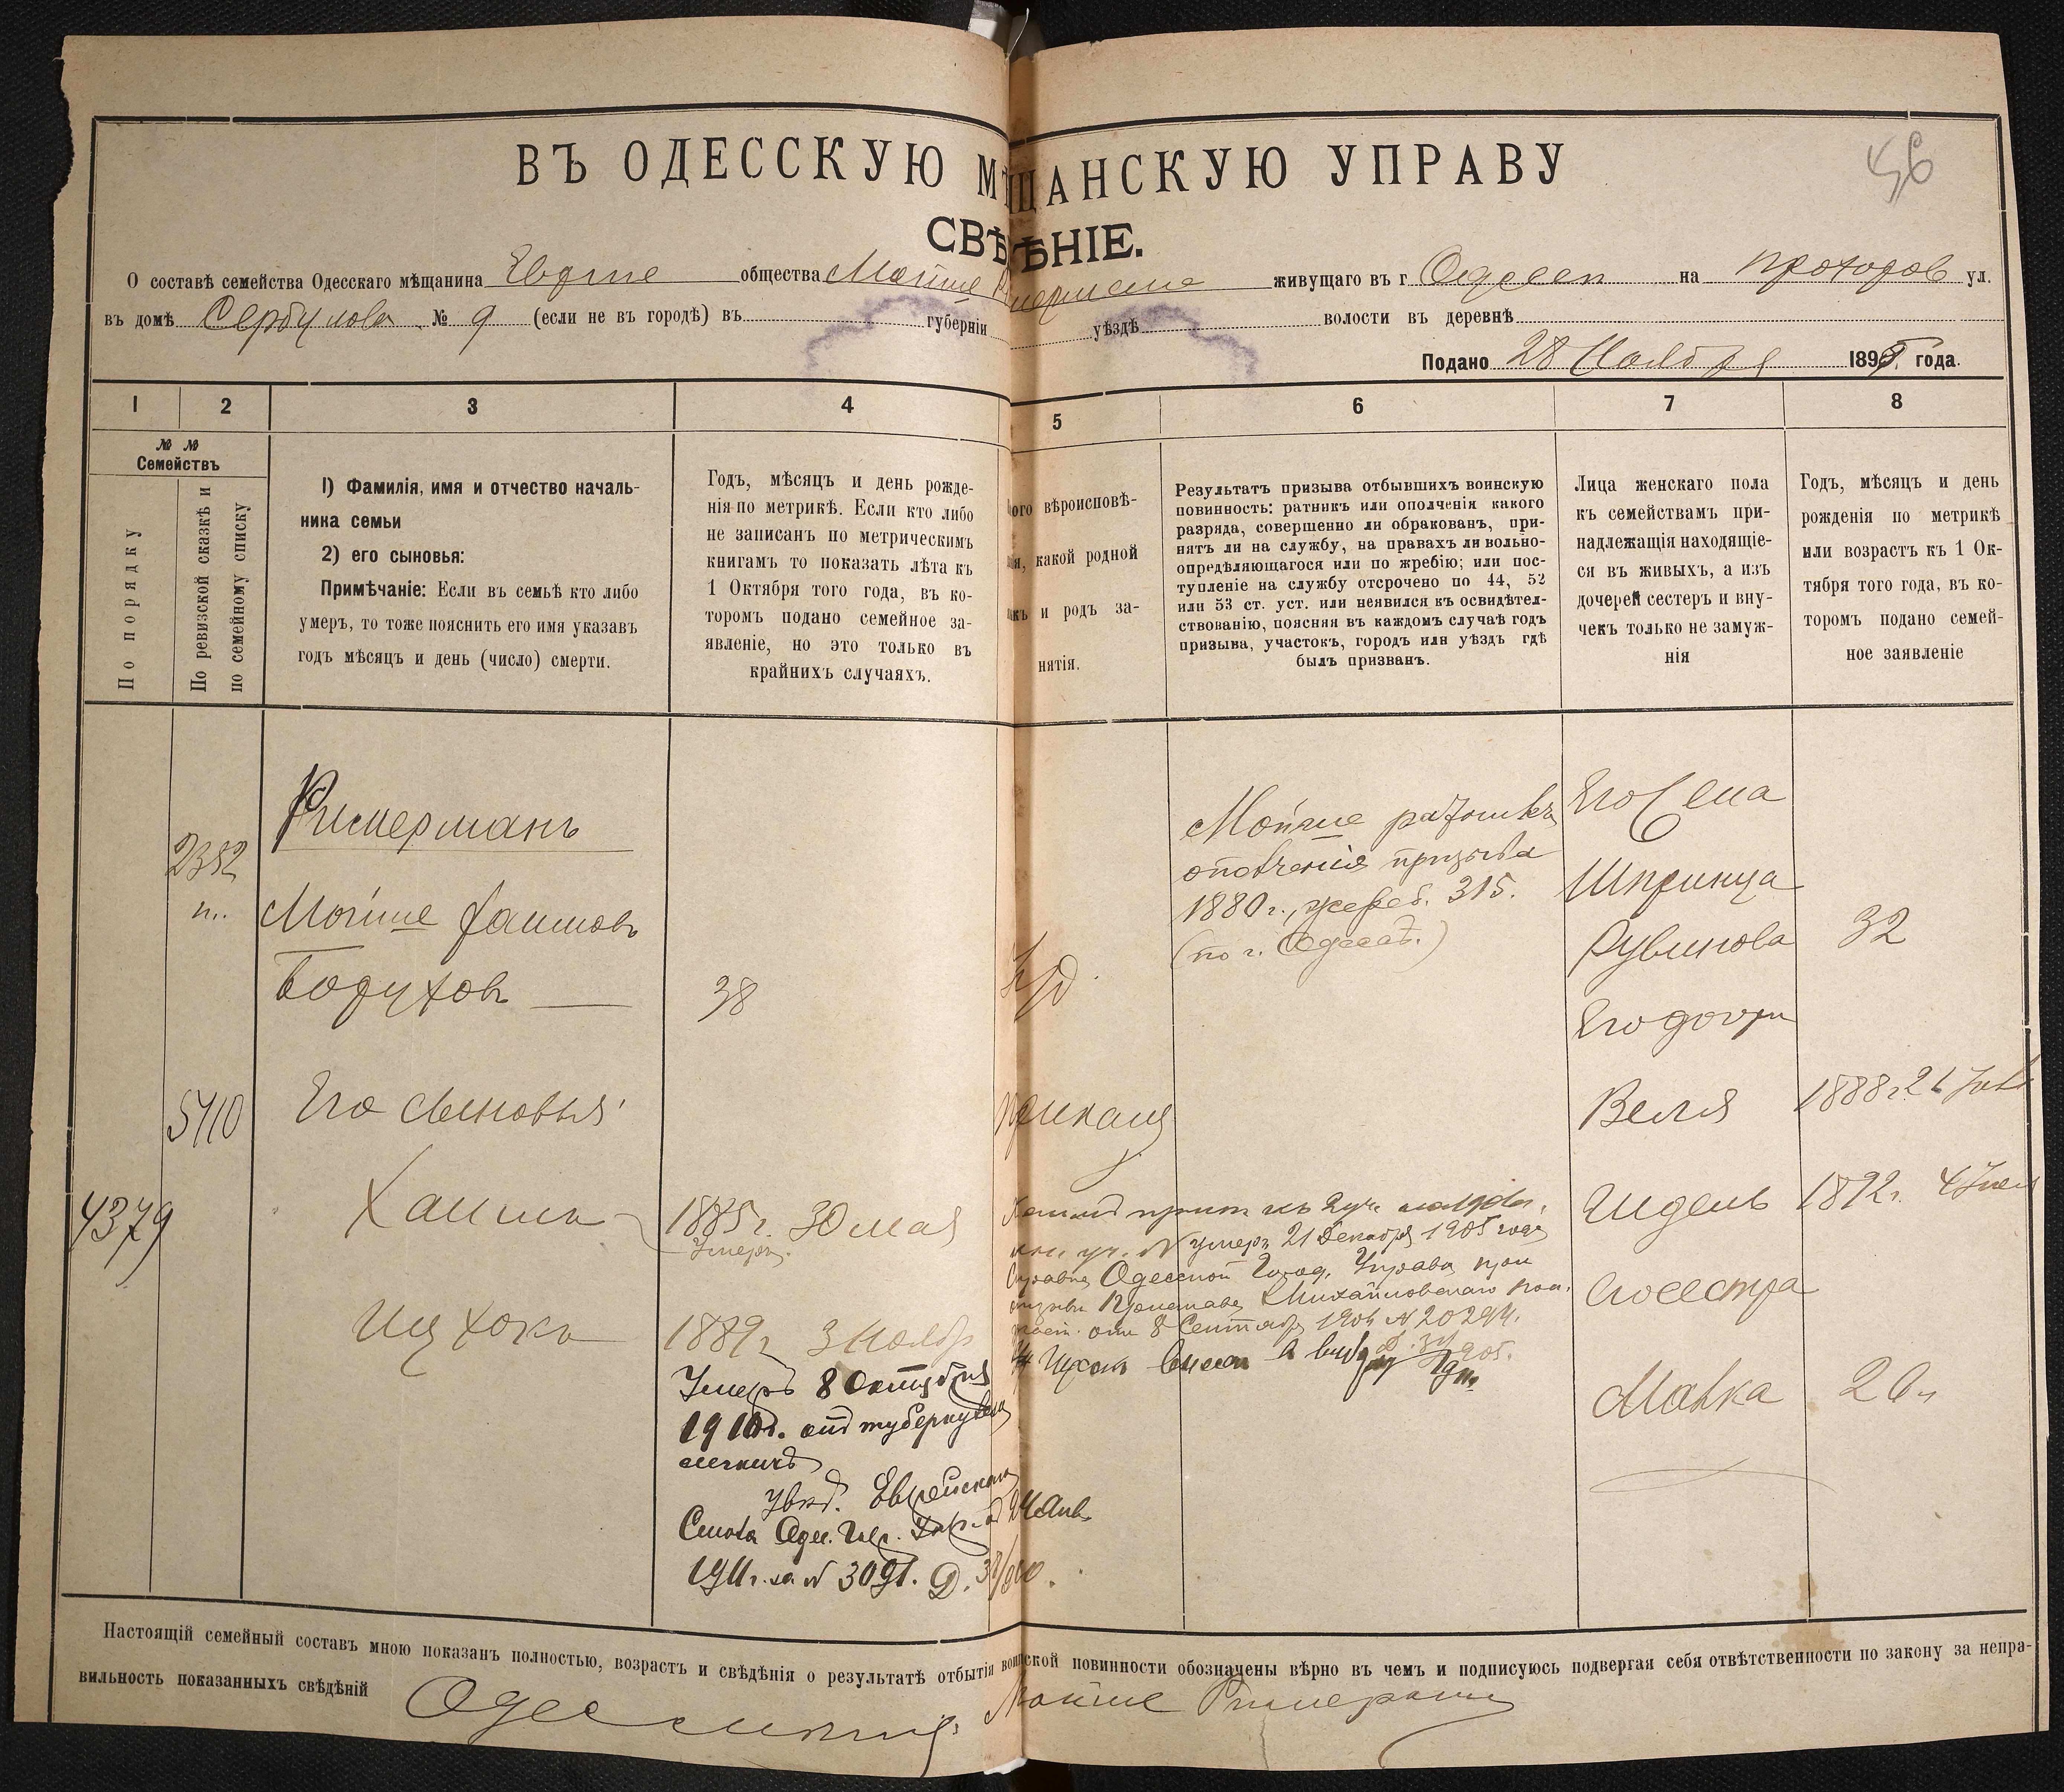 46
ВЪ ОДЕССКУЮ МѢЩАНСКУЮ УПРАВУ
СВѢДѢНІЕ.
О составѣ семейства Одесскаго мѣщанина общества Мойше Римермана живущаго въ г Одессѣ на ул.
въ домѣ № 9 (если не въ городѣ) въ губерніи уѣздѣ волости въ деревнѣ
Подано 28 Ноября 189 года.
1 2 3 4 5 6 7 8
№ №
Семействъ
По порядку
По ревизской сказкѣ и
по семейному списку
1) Фамилія, имя и отчество началь-
ника семьи
2) его сыновья:
Примѣчаніе: Если въ семьѣ кто либо
умеръ, то тоже пояснить его имя указавъ
годъ мѣсяцъ и день (число) смерти.
Годъ, мѣсяцъ и день рожде-
нія по метрикѣ. Если кто либо
не записанъ по метрическимъ
книгамъ то показать лѣта къ
1 Октября того года, въ ко-
торомъ подано семейное за-
явленіе, но это только въ
крайнихъ случаяхъ.
вѣроисповѣ-
какой родной
и родъ за-
нятія.
Результатъ призыва отбывшихъ воинскую
повинность: ратникъ или ополченія какого
разряда, совершенно ли обракованъ, при-
нятъ ли на службу, на правахъ ли вольно-
опредѣляющагося или по жребію; или пос-
тупленіе на службу отсрочено по 44, 52
или 53 ст. уст. или неявился къ освидѣтел-
ствованію, поясняя въ каждомъ случаѣ годъ
призыва, участокъ, городъ или уѣздъ гдѣ
былъ призванъ.
Лица женскаго пола
къ семействамъ при-
надлежащія находящіе-
ся въ живыхъ, а изъ
дочерей сестеръ и вну-
чекъ только не замуж-
нія
Годъ, мѣсяцъ и день
рожденія по метрикѣ
или возрастъ къ 1 Ок-
тября того года, въ ко-
торомъ подано семей-
ное заявленіе
2352
5410
4379
Римерманъ
Мойше Хаимовъ
Бодухов
Его сыновья
Хаимъ
Ицхокъ
38
1885г. 30 мая
Умеръ.
1889г 3 Ноябр
Умеръ 8 Октября
1910г. отъ туберкулеза
легкихъ
Увѣд. Еврейскаго
Стола Одес. Гор. Упр. от 24 Янв.
1911г. за № 3091. Д.
умеръ 21 Декабря 1905 года
Справка Одесской Город. Управы при
отъ 8 Сентября № 20294.
Ицхокъ
Мойше ратникъ
ополченія призыва
1880г., жереб. 315.
(по г. Одессѣ.)
Его Жена
Шпринца
Рувинова 32
Его дочери
Веля 1888г. 21
Шдель 1892г. 4
Его сестра
Малка 20
Настоящій семейный составъ мною показанъ полностью, возрастъ и свѣдѣнія о результатѣ отбытія воинской повинности обозначены вѣрно въ чемъ и подписуюсь подвергая себя отвѣтственности по закону за непра-
вильность показанныхъ свѣдѣній
Мойше Римерманъ